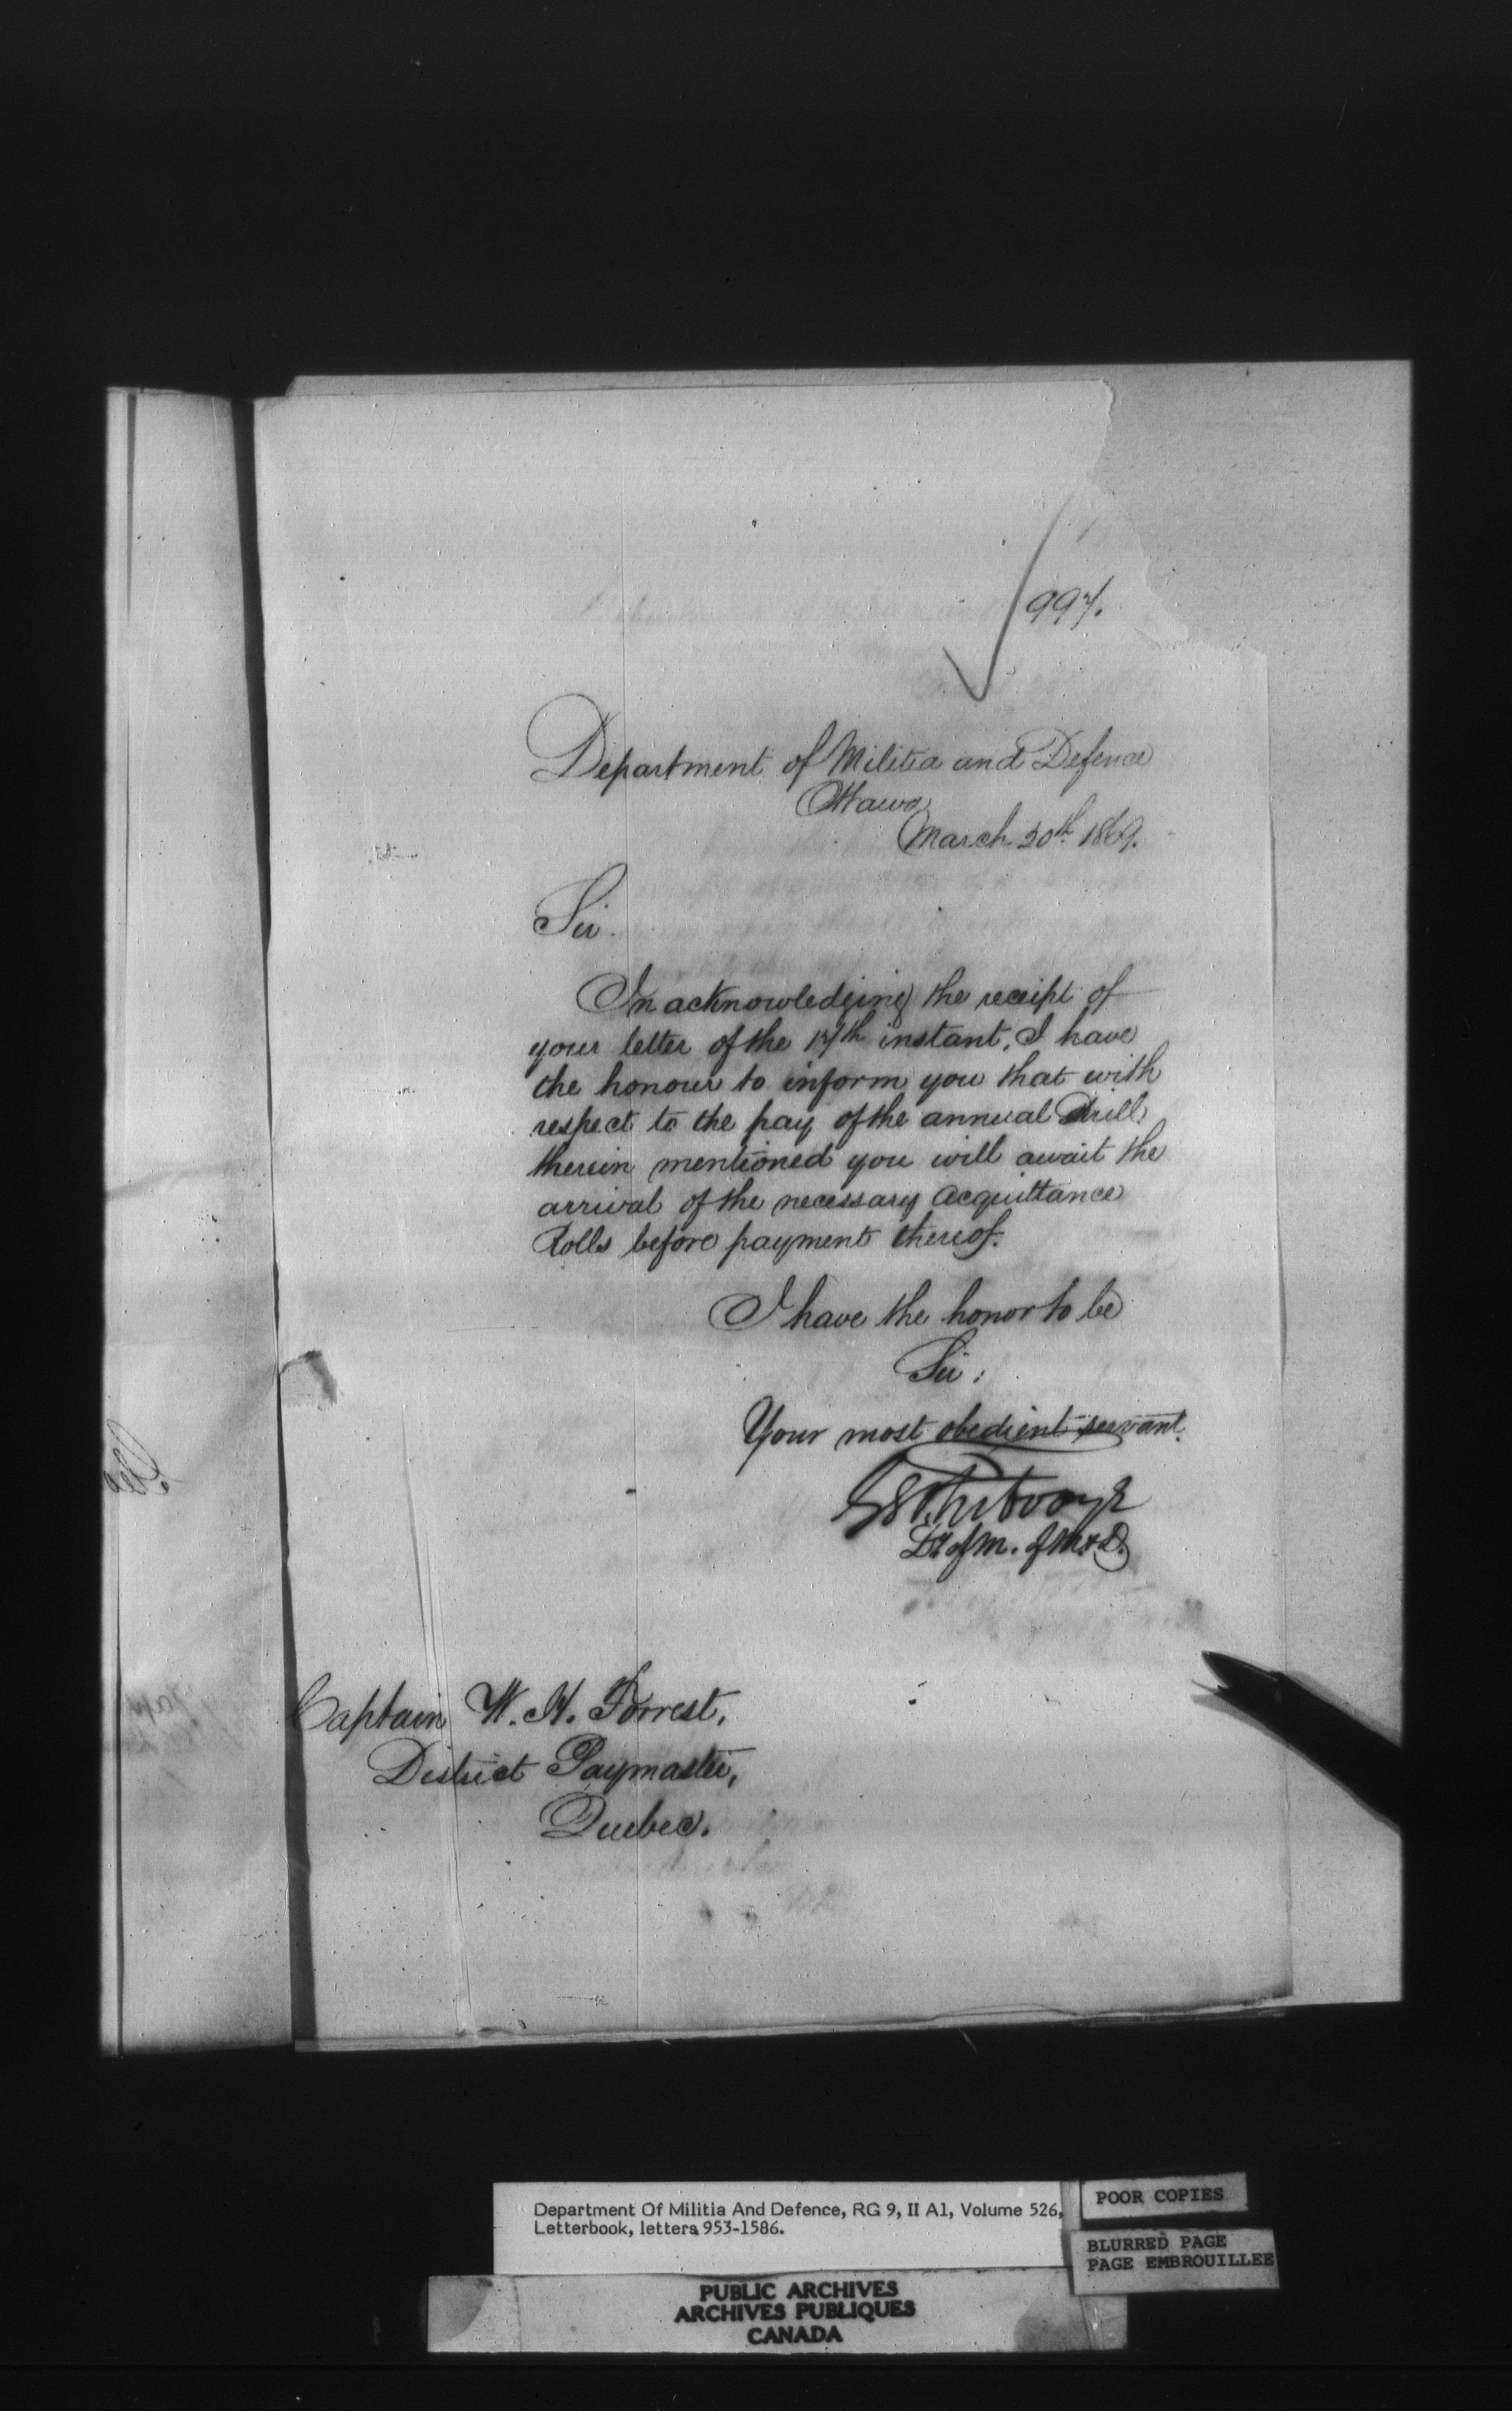 997.
Department of Militia and Defence
Ottawa
March 20th 1869.
Sir.
In acknowledging the receipt of
your letter of the 17th instant, I have
the honour to inform you that with
respect to the pay of the annual Drill
therein mentioned you will await the
arrival of the necessary Acquittance
Rolls before payment thereof.
I have the honor to be
Sir;
Your most obedient servant.
of M. of M. & D.
Captain W. H. Forrest,
District Paymaster,
Quebec.
Department Of Militia And Defence, RG 9, II A1, Volume 526,
Letterbook, letters 953-1586.
POOR COPIES
BLURRED PAGE
PAGE EMBROUILLEE
PUBLIC ARCHIVES
ARCHIVES PUBLIQUES
CANADA